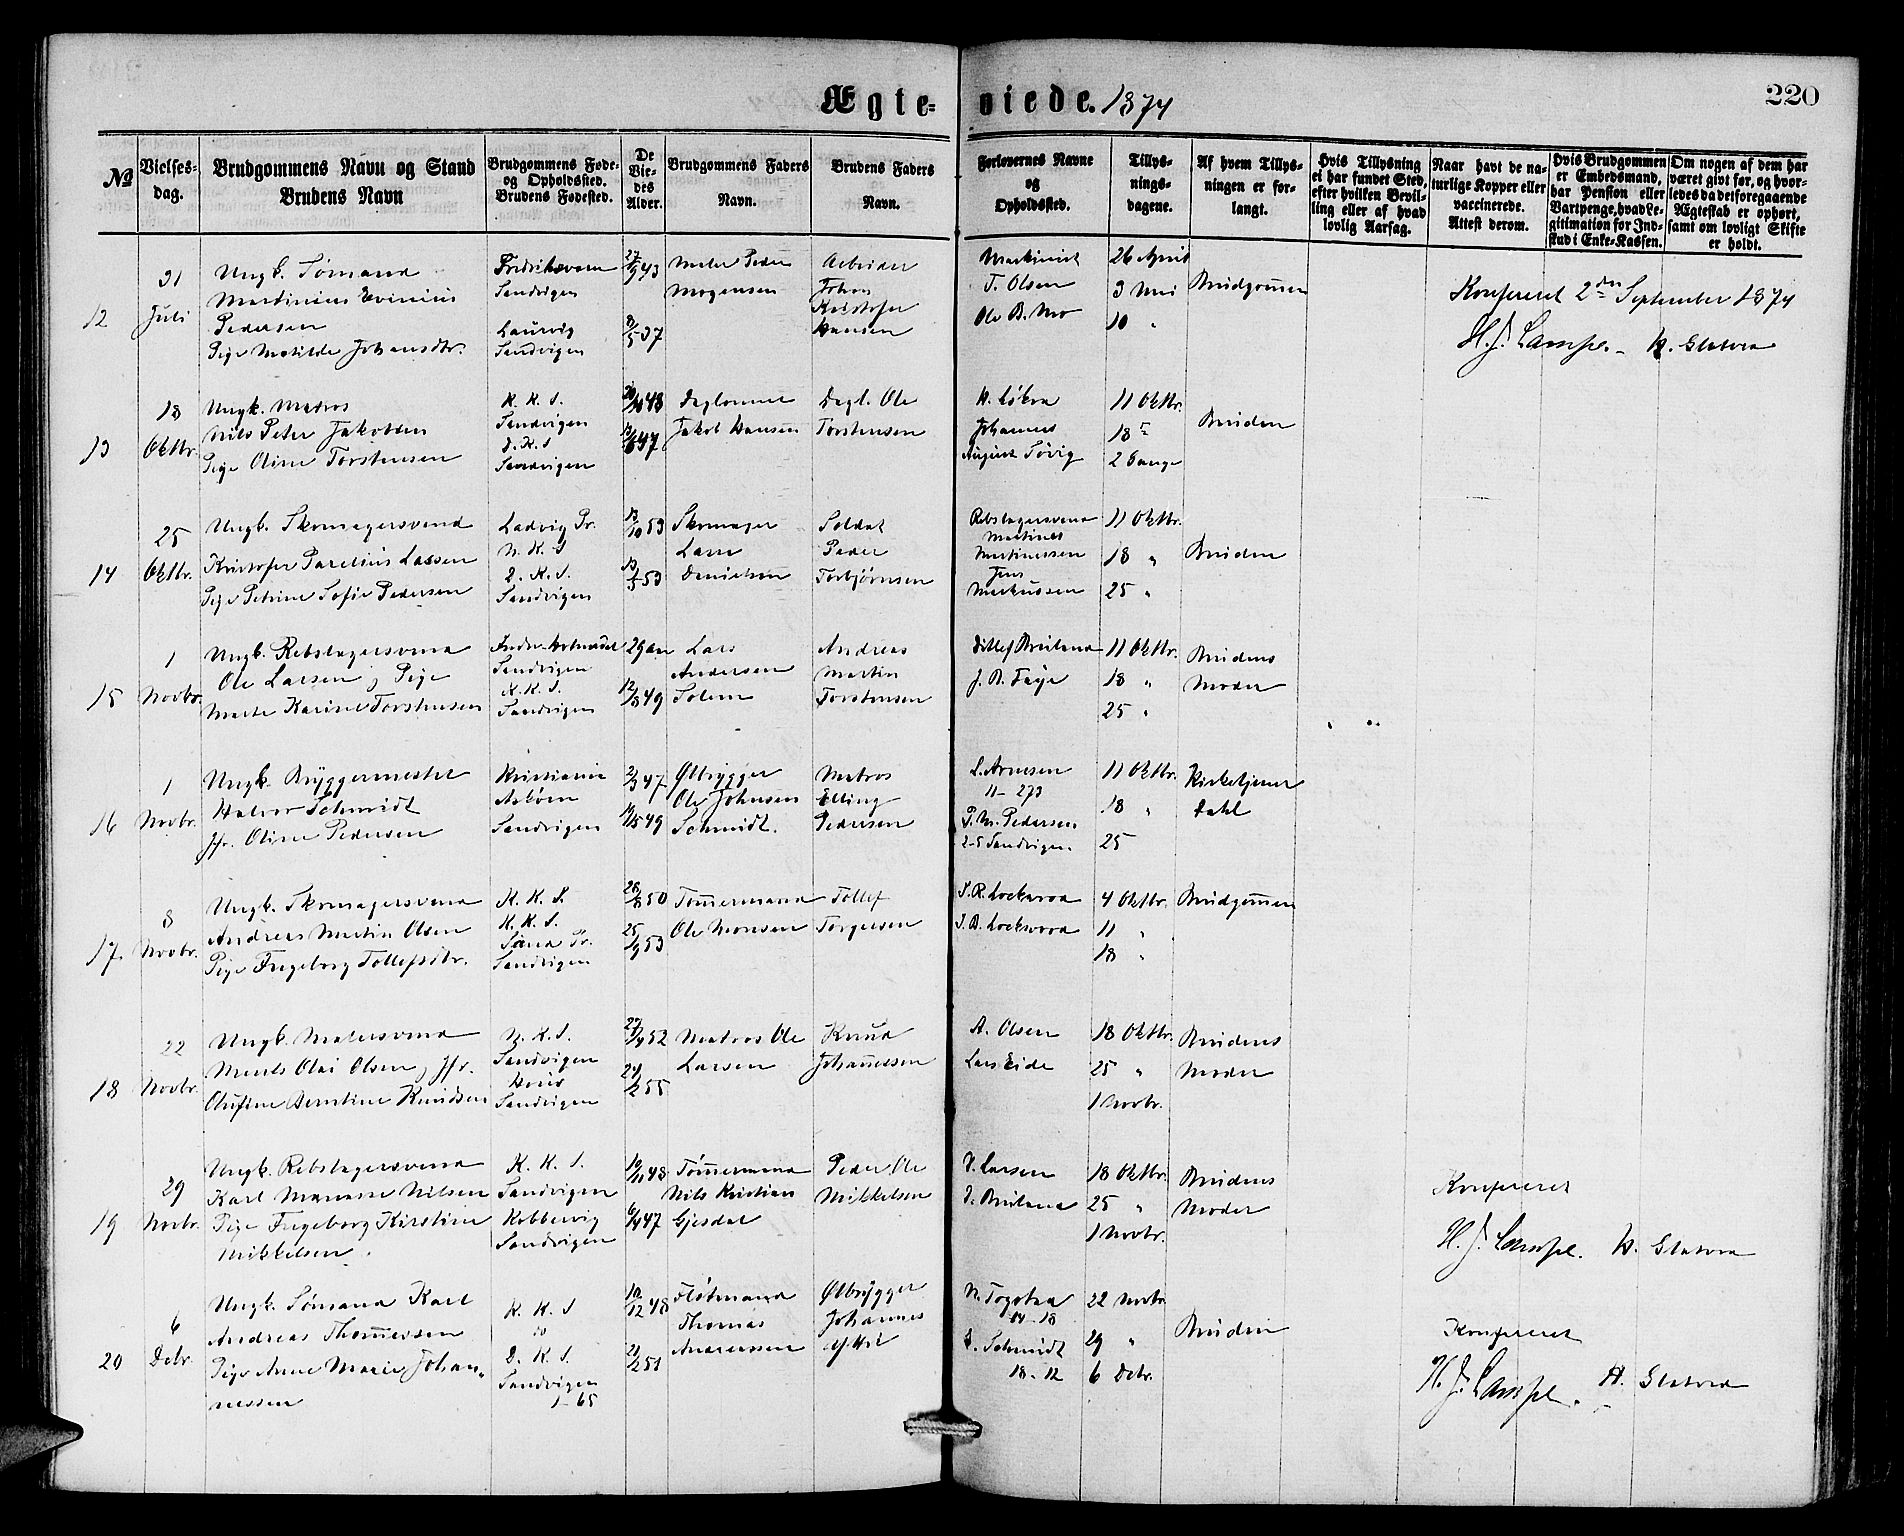 Ægte-viede. 1874
220
№
Vielses-dag.
Brudgommens Navn og Stand
Brudens Navn
Brudgommens Føde- og Opholdssted.
Brudens Fødested.
De Vie-des Alder.
Brudgommens Faders Navn.
Brudens Faders Navn.
Forlovernes Navne og Opholdssted.
Tillys-nings-dagene.
Af hvem Tillys-ningen er for-langt.
Hvis Tillysning ei har fundet Sted, efter hvilken Bevil-ling eller af hvad lovlig Aarsag.
Naar havt de na-turlige Kopper eller vaccinerede. Attest derom.
Hvis Brudgommen er Embedsmand, har Pension eller Vartpenge, hvad Le-gitimation for Ind-skud i Enke-Kassen.
Om nogen af dem har været gift før, og hvor-ledes da det foregaaende Ægteskab er ophørt, samt om lovligt Skifte er holdt.
12
31 Juli
Ungk. Sømand
Martinius Evinius
Pedersen
Pige Matilde Johansdtr.
Fredriksværn
Sandvigen
Laurvig
Sandvigen
27/9 43
8/5 37
Maler Peder
Mogensen
Arbeider
Johan
Kristofer
Hansen
Maskinist
T. Olsen
Ole B. Mo
26 April
3 Mai
10 "
Brudgommen
Konfereret 2den September 1874
H. J. Lampe. H. Slatvea
13
18 Oktbr.
Ungk. Matros
Nils Peter Jakobsen
Pige Oline Torstensen
K. K. S.
Sandvigen
D. K. S
Sandvigen
48
47
Daglønner
Jakob Hansen
Dagl. Ole
Torstensen
H. Løkra
Johannes
August Søvig
11 Oktbr.
18
2 Gange
Bruden
14
25 Oktbr.
Ungk. Skomagersvend
Kristofer Parelius Lassen
Pige Petrine Sofie Pedersen
Ladvig Pr.
N. K. S
D. K. S.
Sandvigen
13/10 53
53
Skomager
Lars
Danielsen
Soldat
Peder
Torbjørnsen
Rebslagersvend
Martines
Martinessen
Jens
Markussen
11 Oktbr.
18 "
25 "
Bruden
15
1 Novbr.
Ungk. Rebslagersvend
Ole Larsen, Pige
Marte Karine Torstensen
Indre-Holmedal
Sandvigen
K. K. S.
Sandvigen
29 Aar
12/8 49
Lars
Andersen
Solem
Andreas
Martin
Torstensen
Ditlef Breiland
J. B. Faye
11 Oktbr.
18 "
25 "
Brudens
Moder
16
1 Novbr.
Ungk. Bryggermester
Halvor Schmidt
Jfr. Oline Pedersen
Kristiania
Askøen
Sandvigen
2/3 47
49
Ølbrygger
Ole Johnsen
Schmidt.
Matros
Elling
Pedersen
L. Arnesen
11 - 273
P. M. Pedersen
2-5 Sandvigen.
11 Oktbr.
18 "
25
Kirketjener
Dahl
17.
8 Novbr.
Ungk. Skomagersvend
Andreas Martin Olsen
Pige Ingeborg Tollefsdtr.
K. K. S.
K. K. S.
Sund Pr.
Sandvigen
26/8 50
25/9 53
Tømmermand
Ole Monsen
Tollef
Torgersen
S. R. Lockwood
S. B. Lockwood
4 Oktbr.
11 "
18 "
Brudgommen
18
22 Novbr.
Ungk. Malersvend
Ments Olai Olsen, Jfr.
Olufine Berntine Knudsen
N. K. S.
Sandvigen
Sandvigen
52
55
Matros Ole
Larsen
Knud
Johannessen
A. Olsen
Lars Eide
18 Oktbr.
25 "
1 Novbr.
Brudens
Moder
19
29 Novbr.
Ungk. Rebslagersvend
Karl Manasse Nilsen
Pige Ingeborg Kirstine
Mikkelsen
K. K. S.
Sandvigen
Kobbervig
Sandvigen
48
47
Tømmermand
Nils Kristian
Gjesdal
Peder Ole
Mikkelsen
Larsen
Breiland
18 Oktbr.
25 "
1 Novbr.
Brudens
Moder
Konfereret
H. J. Lampe. H. Slatvea
20
6 Debr.
Ungk. Sømand Karl
Andreas Thomessen
Pige Anne Marie Johan-
nessen
K. K. S
do
D. K. S.
Sandvigen
1 - 65
10/12 48
51
Fløtmand
Thomas
Andersen
Ølbrygger
Johannes
N. Togstad
14 - 18
Schmidt
18 - 12
22 Novbr
29 "
6 Debr.
Bruden
Konfereret
H. J. Lampe. H. Slatvea